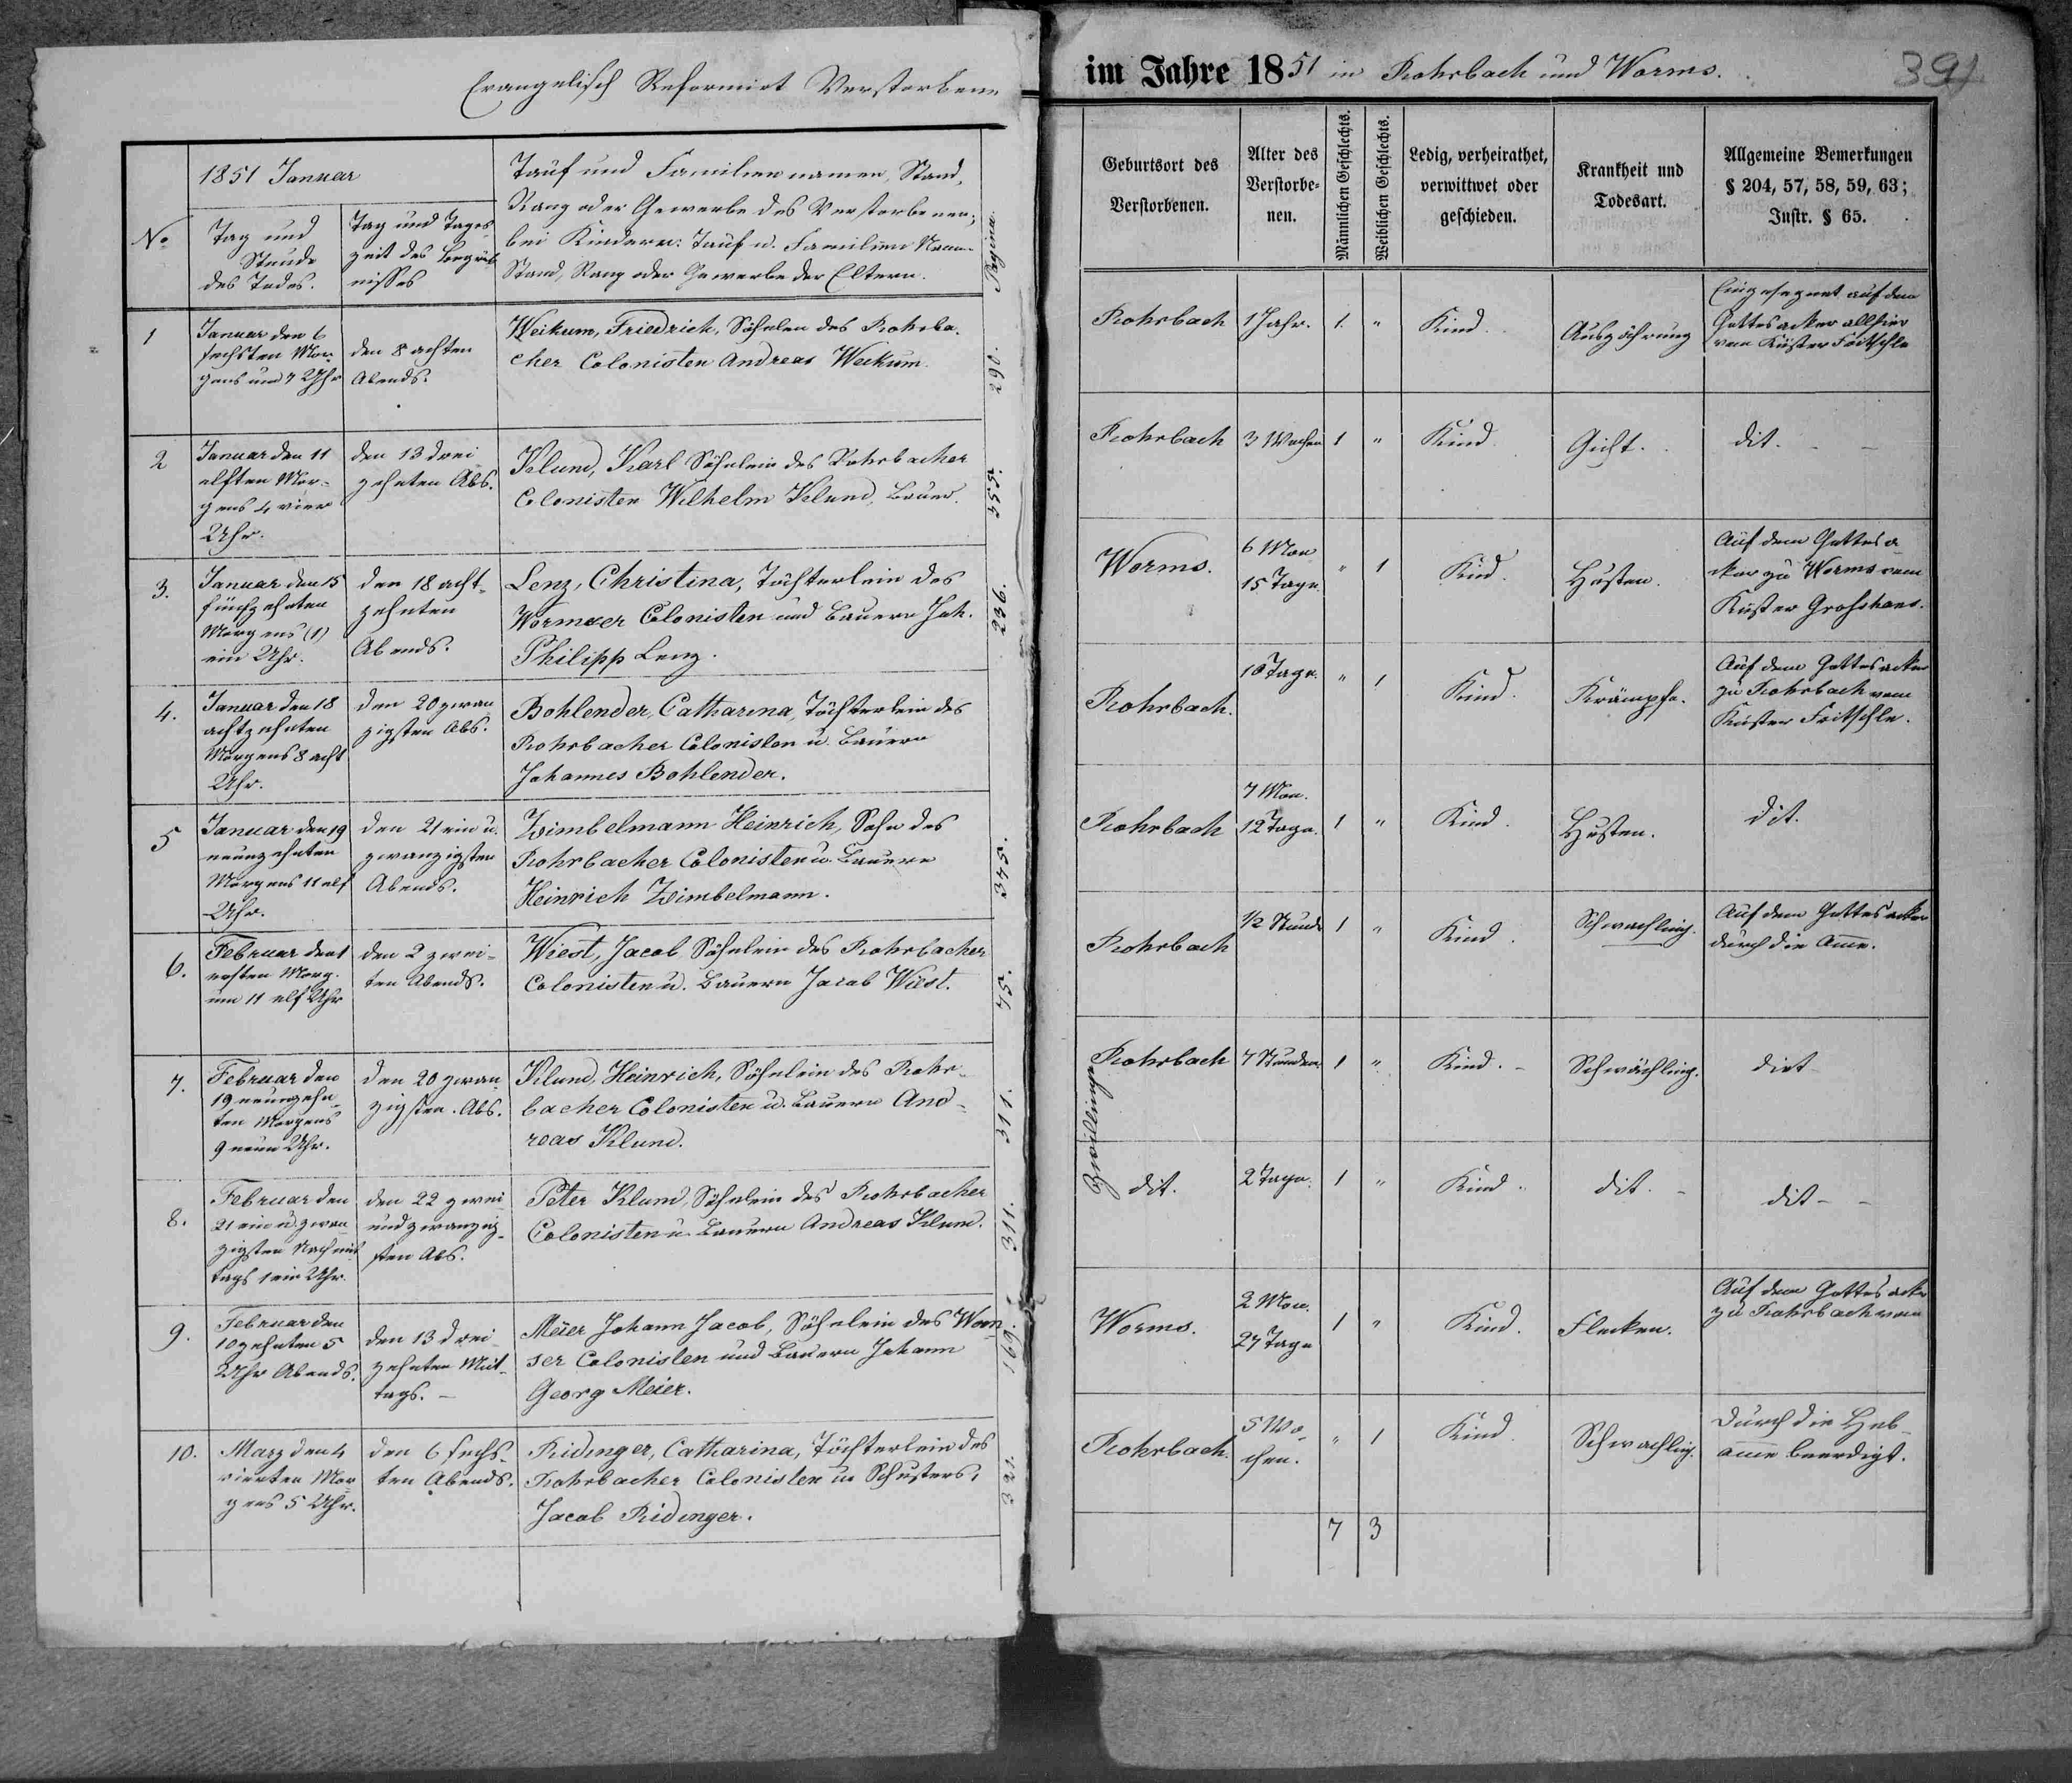 Evangelisch Reformirt Verstorbene
1851 Januar
No
Tag und
Stunde
des Todes.
Tag und Tages
zeit des Begräb
nisses
Tauf und Familiennamen, Stand,
Rang oder Gewerbe des Verstorbenen;
bei Kindern: Tauf u. Familien Name
Stand, Rang oder Gewerbe der Eltern.
Pagina
1
Januar den 6
sechsten Mor
gens um 7 Uhr
den 8 achten
Abends.
Weikum, Friedrich, Söhnlein des Rohrba-
cher Colonisten Andreas Weikum.
290.
2
Januar den 11
elften Mor-
gens 4 vier
Uhr.
den 13 drei
zehnten Abs.
Klund, Karl Söhnlein des Rohrbacher
Colonisten Wilhelm Klund, Bauer.
3.
Januar den 15
fünfzehnten
Morgens (1)
ein Uhr.
den 18 acht-
zehnten
Abends.
Lenz, Christina, Töchterlein des
Wormser Colonisten und Bauern Joh.
Philipp Lenz.
236.
4.
Januar den 18
achtzehnten
Morgens 8 acht
Uhr.
den 20 zwan
zigsten Abs.
Bohlender, Catharina, Töchterlein des
Rohrbacher Colonisten u. Bauern
Johannes Bohlender.
5
Januar den 19
neunzehnten
Morgens 11 elf
Uhr.
den 21 ein u.
zwanzigsten
Abends.
Zimbelmann Heinrich, Sohn des
Rohrbacher Colonisten u. Bauern
Heinrich Zimbelmann.
345.
6.
Februar den 1
ersten Morg.
um 11 elf Uhr
den 2 zwei-
ten Abends.
Wiest, Jacob Söhnlein des Rohrbacher
Colonisten u. Bauern Jacob Wiest.
54.
7.
Februar den
19 neunzehn-
ten Morgens
9 neun Uhr.
den 20 zwan
zigsten. Abs.
Klund, Heinrich, Söhnlein des Rohr-
bacher Colonisten u. Bauern And-
reas Klund.
311.
8.
Februar den
21 ein u. zwan
zigsten Nachmit
tags 1 ein Uhr.
den 22 zwei
und zwanzig-
sten Abs.
Peter Klund, Söhnlein des Rohrbacher
Colonisten u. Bauern Andreas Klund.
311.
9.
Februar den
10 zehnten 5
Uhr Abends.
den 13 drei
zehnten Mit-
tags. -
Meier Johann Jacob, Söhnlein des Worm
ser Colonisten und Bauern Johann
Georg Meier.
169.
10.
Marz den 4
vierten Mor
gens 5 Uhr.
den 6 sechs-
ten Abends.
Ridinger, Catharina, Töchterlein des
Rohrbacher Colonisten u. Schusters,
Jacob Ridinger.
im Jahre 1851 in Rohrbach und Worms.
391
Geburtsort des
Verstorbenen.
Alter des
Verstorbe-
nen.
Männlichen Geschlechts.
Weiblichen Geschlechts.
Ledig, verheirathet,
verwittwet oder
geschieden.
Krankheit und
Todesart.
Allgemeine Bemerkungen
§ 204, 57, 58, 59, 63;
Instr. § 65.
Rohrbach 1 Jahr. 1. " Kind. Auszöhrung
Eingesegnet auf dem
Gottesacker allhier
vom Küster Fritschle
Rohrbach 3 Wochen 1 " Kind. Gicht. dit. - -
Worms.
6 Mon
15 Tage.
" 1 Kind. Husten.
Auf dem Gottesa
cker zu Worms vom
Küster Groshans.
Rohrbach. 10 Tage. " 1 Kind. Krämpfe.
Auf dem Gottesacker
zu Rohrbach vom
Küster Fritschle.
Rohrbach
7 Mon.
12 Tage.
1 " Kind. Husten. dit.
Rohrbach 1/2 Stunde 1 " Kind. Schwachling.
Auf dem Gottesacker
durch die Ame.
Zwillinge
Rohrbach 7 Stunden 1 " Kind. - Schwächling. dit
dit. 2 Tage. 1 " Kind. dit. - dit - -
Worms.
2 Mon.
27 Tage
1 " Kind. Flecken.
Auf dem Gottesacker
zu Rohrbach vom
Rohrbach.
5 Wo-
chen.
" 1 Kind Schwachling.
Durch die Heb-
ame beerdigt.
7 3